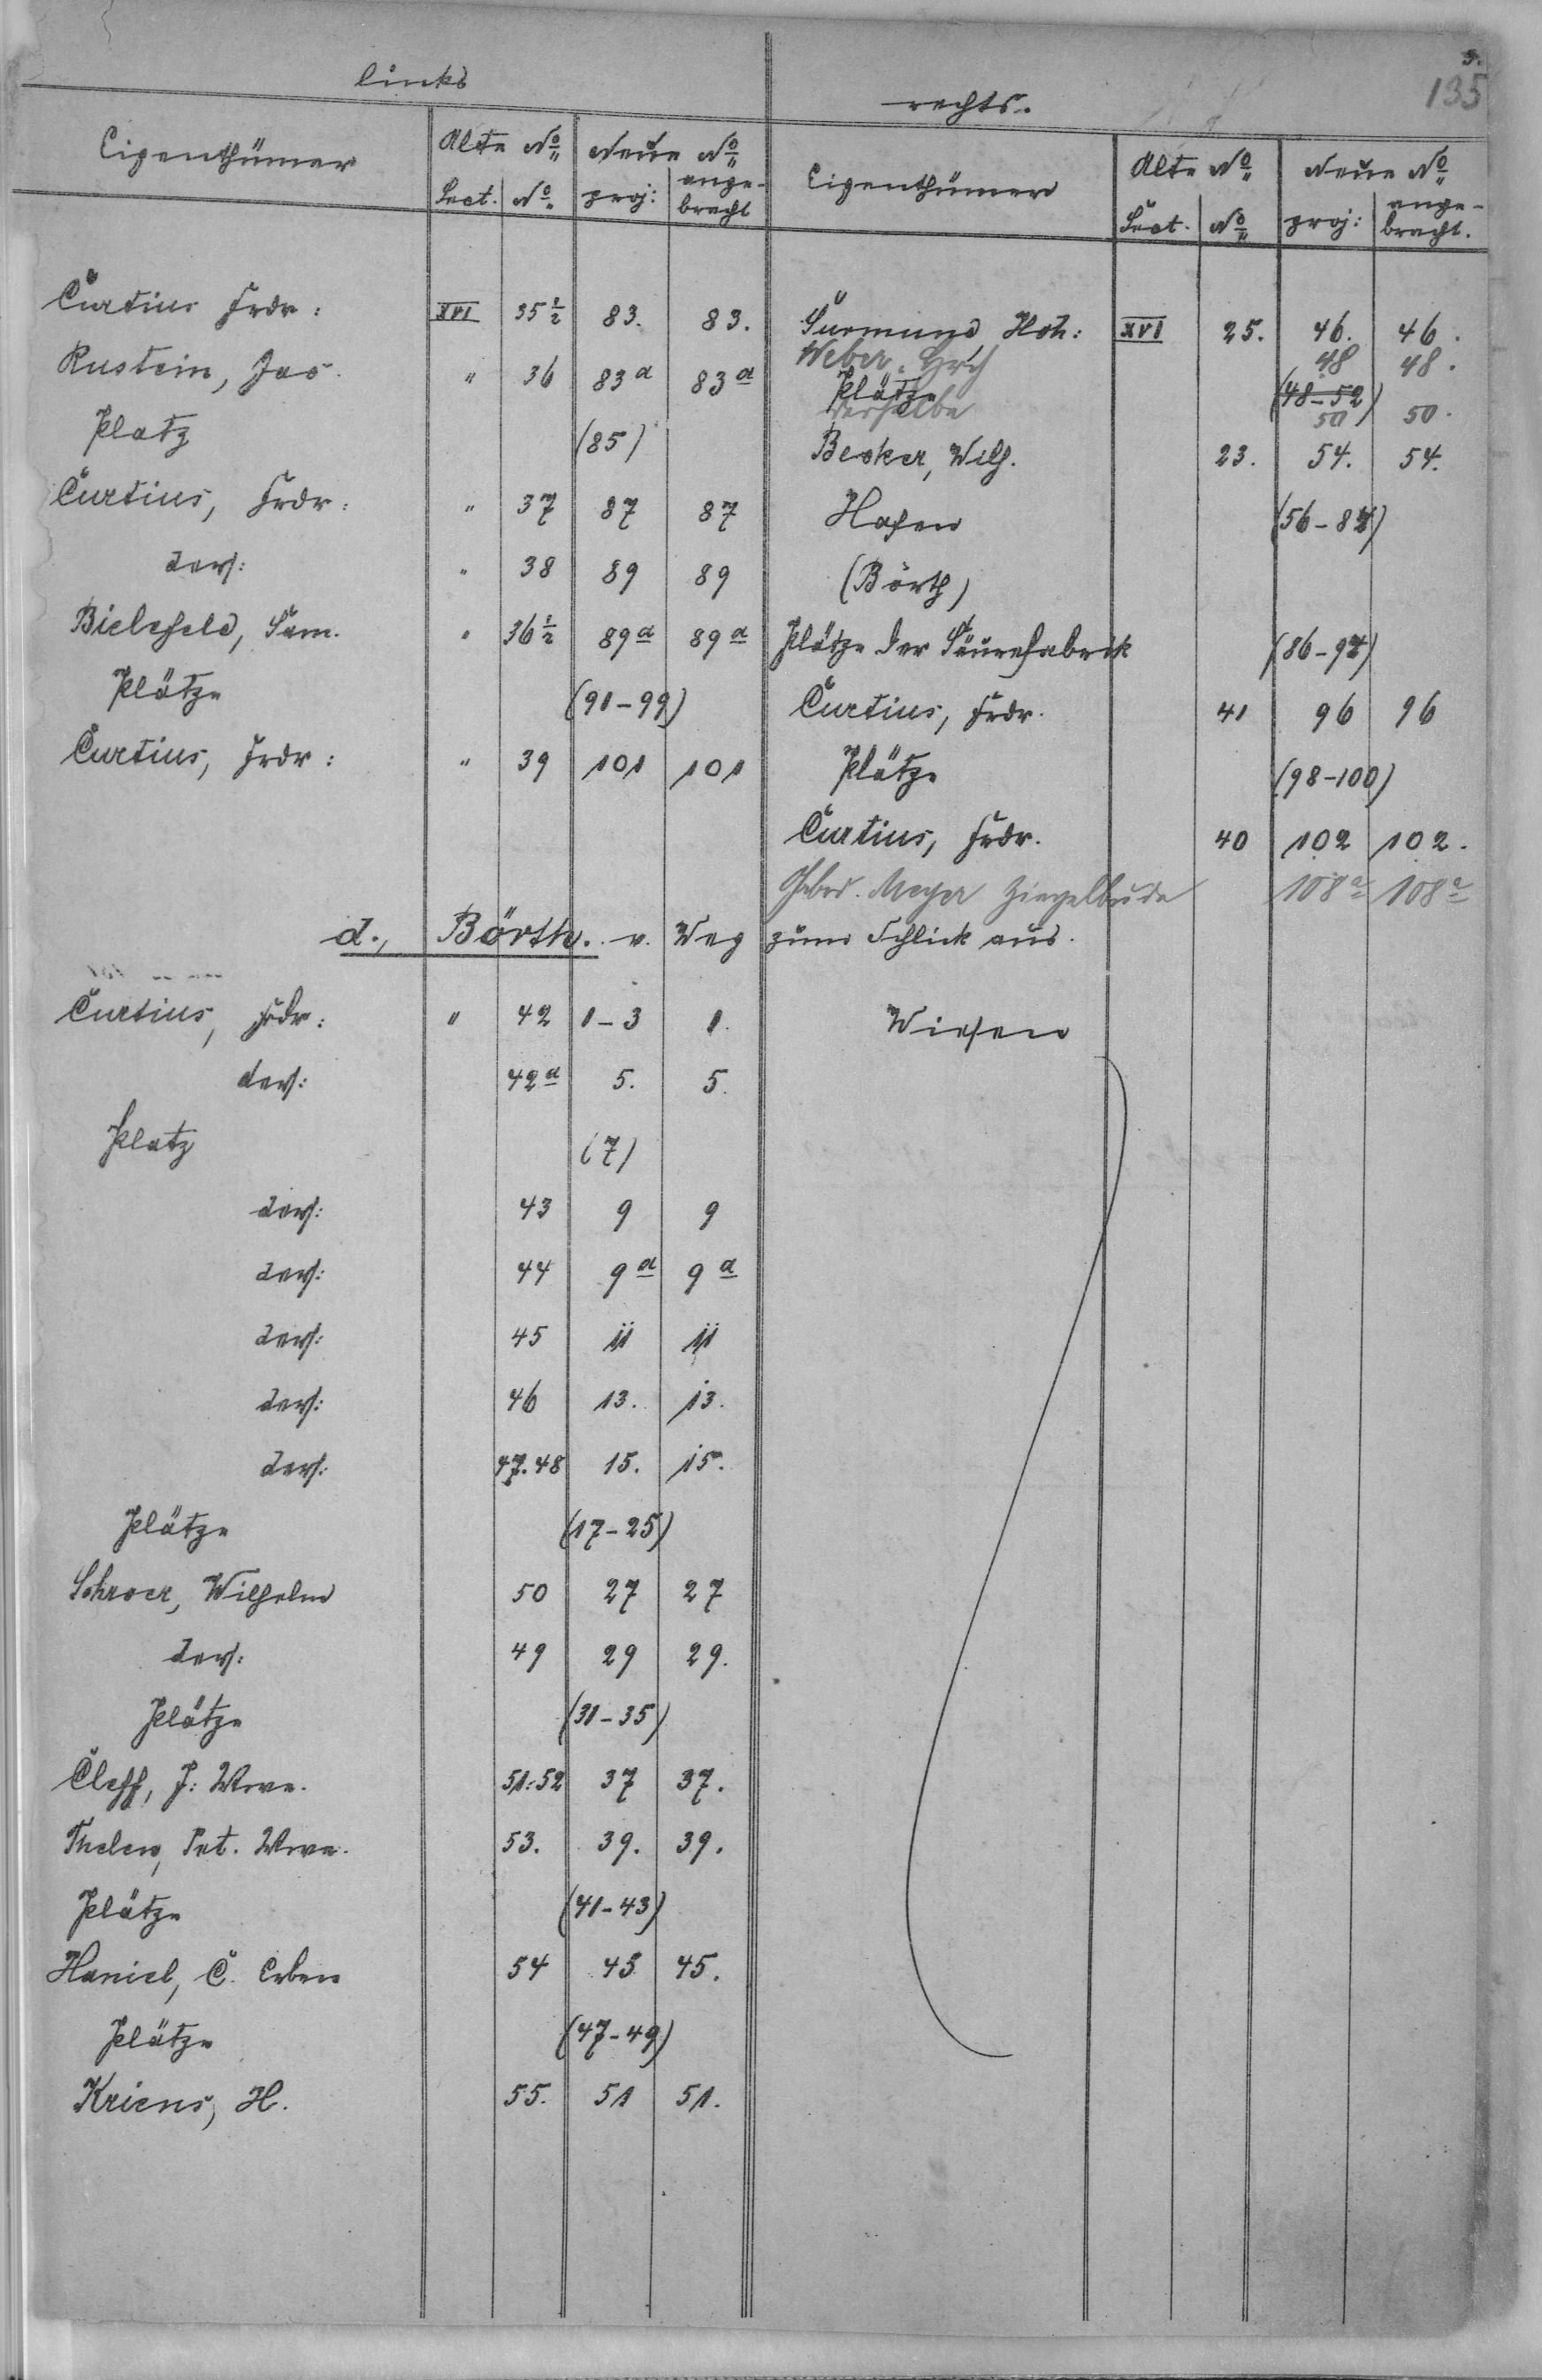 5.
135
links
rechts.
Eigenthümer | Alte No | Neue No | Eigenthümer | Alte No | Neue No
Sect. | No | proj: | ange-bracht | Sect. | No | proj: | ange-bracht.
Curtius Frdr: | XVI | 35 1/2 | 83. | 83. | Surmund, Hch: | XVI | 25. | 46. | 46.
Weber, Hrch | 48 | 48.
Rustein, Jac. | " | 36 | 83a | 83a | Plätze | (48-52)
derselbe | 50 | 50.
Platz | (85) | Becker, Wilh. | 23. | 54. | 54.
Curtius, Frdr: | " | 37 | 87 | 87 | Hafen | (56-84)
ders: | " | 38 | 89 | 89 | (Börth)
Bielefeld, Sam. | " | 36 1/2 | 89a | 89a | Plätze der Säurefabrik | (86-94)
Plätze | (91-99) | Curtius, Frdr. | 41 | 96 | 96
Curtius, Frdr: | " | 39 | 101 | 101 | Plätze | (98-100)
Curtius, Frdr. | 40 | 102 | 102.
Gebrd. Meyer Ziegelbude | 108a | 108a
d., Börth. v. Weg zum Schlick aus.
Curtius, Frdr: | " | 42 | 1-3 | 1. | Wiesen
ders: | 42a | 5. | 5.
Platz | (7)
ders: | 43 | 9 | 9
ders: | 44 | 9a | 9a
ders: | 45 | 11 | 11
ders: | 46 | 13. | 13.
ders: | 47.48 | 15. | 15.
Plätze | (17-25)
Schroer, Wilhelm | 50 | 27 | 27
ders: | 49 | 29 | 29.
Plätze | (31-35)
Cleff, J: Wwe. | 51.52 | 37 | 37.
Thelen, Pet. Wwe. | 53. | 39. | 39.
Plätze | (41-43)
Haniel, C. Erben | 54 | 45 | 45.
Plätze | (47-49)
Kriens, H. | 55. | 51 | 51.